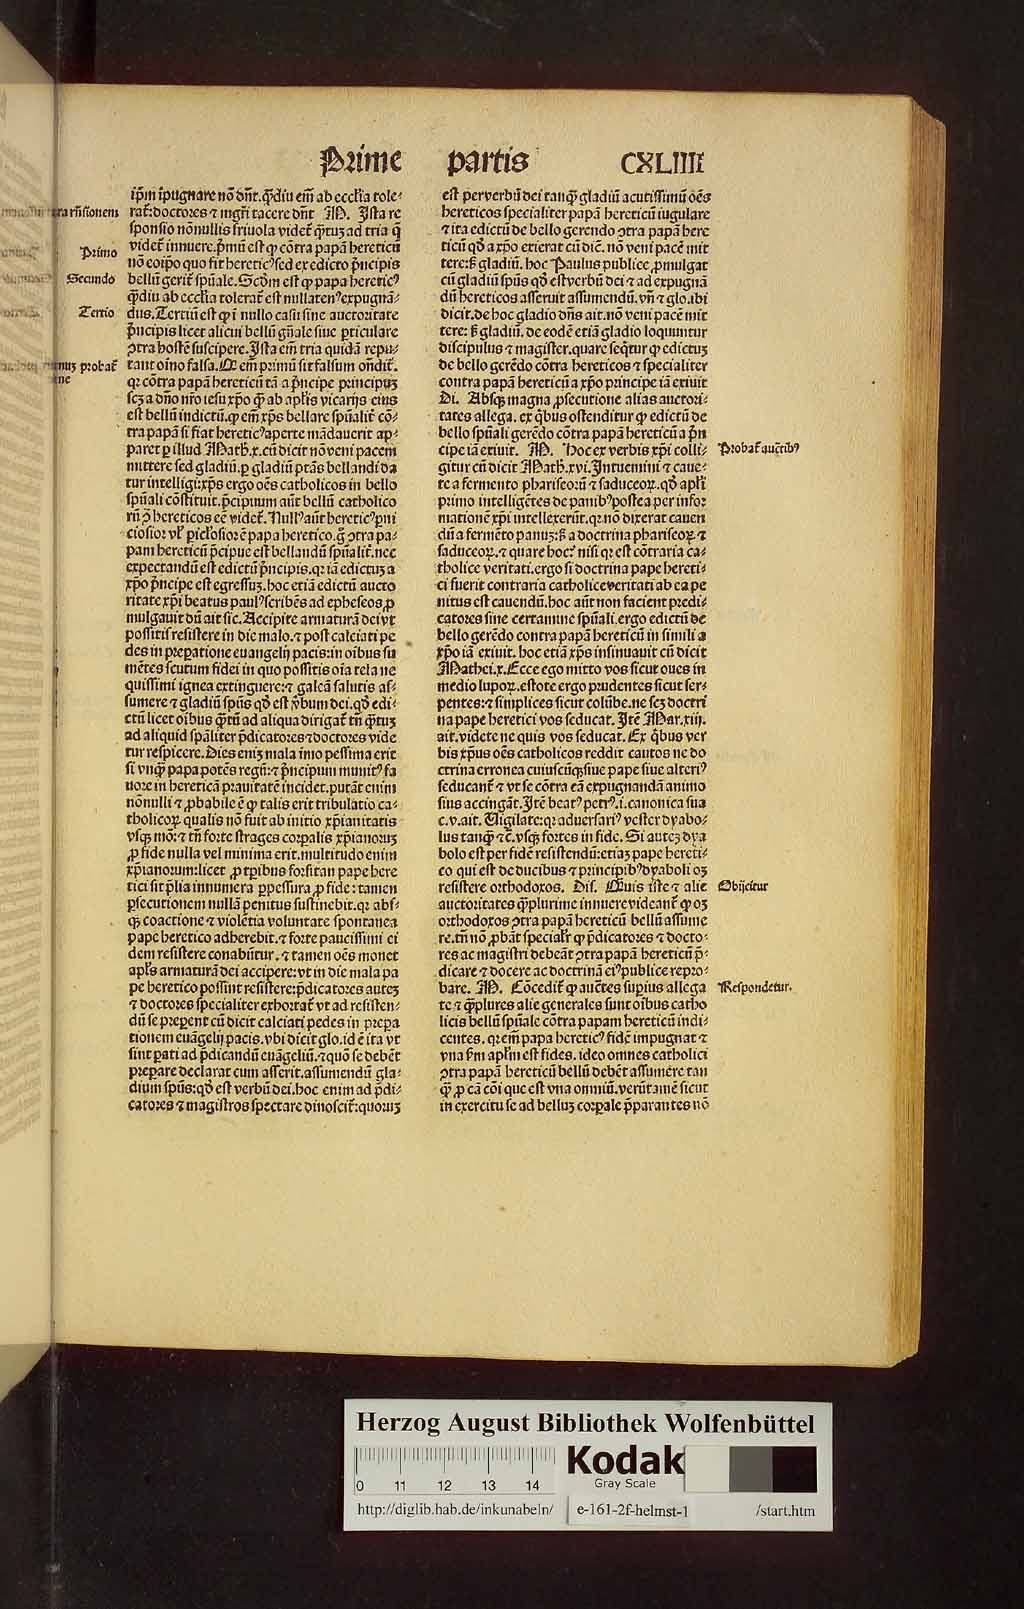 Prime partis CXLIIII
ip̄m īpugnare nō dn̄t. q̄diu em̄ ab eccl̄ia tole⸗
rat᷑: doctores ⁊ mgr̄i tacere dn̄t M. Ista re
sponsio nōnullis friuola videt᷑ q̄tuꝫ ad tria q̄
videt᷑ innuere. p̄mū est ꝙ cōtra papā hereticū
nō eoip̄o quo fit heretic⁹ sed ex edicto p̄ncipis
bellū gerit᷑ spūale. Scd̄m est ꝙ papa heretic⁹
q̄diu ab eccl̄ia tolerat᷑ est nullaten⁹ expugnā⸗
dus. Tertiū est ꝙ ī nullo casu sine auctoritate
p̄ncipis licet alicui bellū gn̄ale siue ꝑticulare
ꝯtra hostē suscipere. Ista em̄ tria quidā repu⸗
tant oīno falsa. Q em̄ primū sit falsum on̄dit᷑.
qꝛ cōtra papā hereticū tā a p̄ncipe principuꝫ
scꝫ a dn̄o nr̄o iesu xp̄o q̄ ab apl̄is vicarijs eius
est bellū indictū. ꝙ em̄ xp̄s bellare spūalit᷑ cō⸗
tra papā si fiat heretic⁹ aperte mādauerit ap⸗
paret ꝑ illud Math̄. x. cū dicit nō veni pacem
mittere sed gladiū. ꝑ gladiū ptās bellandi da
tur intelligi: xp̄s ergo oēs catholicos in bello
spūali cōstituit. p̄cipuum aūt bellū catholico
rū ꝯ̄ hereticos eē videt᷑. Null⁹ aūt heretic⁹ ꝑni
ciosior vl̄ ꝑicl̄osior ē papa heretico. g̊ ꝯtra pa⸗
pam hereticū p̄cipue est bellandū spūalit᷑. nec
expectandū est edictū p̄ncipis. qꝛ iā edictuꝫ a
xp̄o p̄ncipe est egressuꝫ. hoc etiā edictū aucto
ritate xp̄i beatus paul⁹ scribēs ad ephesoes ꝓ
mulgauit dū ait sic. Accipite armaturā dei vt
possitis resistere in die malo. ⁊ post calciati pe
des in preparatione euangelij pacis: in oībus su
mētes scutum fidei in quo possitis oīa tela ne
quissimi ignea extinguere: ⁊ galeā salutis as⸗
sumere ⁊ gladiū spūs qd̄ est v̄bum dei. qd̄ edi⸗
ctū licet oībus q̄tū ad aliqua dirigat᷑ tn̄ q̄tuꝫ
ad aliquid spāliter p̄dicatores ⁊ doctores vide
tur respicere. Dies enīꝫ mala īmo pessima erit
si vnq̄ papa potēs regū: ⁊ p̄ncipum munit⁹ fa
uore in hereticā prauitatē incidet. putāt enim
nōnulli ⁊ ꝓbabile ē ꝙ talis erit tribulatio ca⸗
tholicoꝝ qualis nō fuit ab initio xp̄ianitatis
vsqꝫ mō: ⁊ tn̄ forte strages corꝑalis xp̄ianoruꝫ
ꝓ fide nulla vel minima erit. multitudo enim
xp̄ianorum: licet ꝓ tꝑibus forsitan pape here
tici sit p̄lia innumera ꝑpessura ꝓ fide: tamen
ꝑsecutionem nullā penitus sustinebit. qꝛ abs⸗
qꝫ coactione ⁊ violētia voluntate spontanea
pape heretico adherebit. ⁊ forte paucissimi ei
dem resistere conabūtur. ⁊ tamen oēs monet
apl̄s armaturā dei accipere: vt in die mala pa
pe heretico possint resistere: p̄dicatores auteꝫ
⁊ doctores specialiter exhortat᷑ vt ad resisten⸗
dū se preꝑent cū dicit calciati pedes in preꝑa
tionem euāgelij pacis. vbi dicit glo. id ē ita vt
sint ꝑati ad p̄dicandū euāgeliū. ⁊ quō se debēt
preꝑare declarat cum asserit. assumendū gla⸗
dium spūs: qd̄ est verbū dei. hoc enim ad p̄di⸗
catores ⁊ magistros spectare dinoscit᷑: quoruꝫ
est per verbū dei tanq̄ gladiū acutissimū oēs
hereticos specialiter papā hereticū iugulare
⁊ ita edictū de bello gerendo ꝯtra papā here
ticū qd̄ a xp̄o exierat cū dic̄. nō veni pacē mit
tere: s̄ gladiū. hoc Paulus publice ꝓmulgat
cū gladiū spūs qd̄ est verbū dei ⁊ ad expugnā
dū hereticos asseruit assumendū. vn̄ ⁊ glo. ibi
dicit. de hoc gladio dn̄s ait. nō veni pacē mit
tere: s̄ gladiū. de eodē etiā gladio loquuntur
discipulus ⁊ magister. quare seq̄tur ꝙ edictuꝫ
de bello gerēdo cōtra hereticos ⁊ specialiter
contra papā hereticū a xp̄o principe iā exiuit
Di. Absqꝫ magna ꝓsecutione alias auctori⸗
tates allega. ex q̄bus ostenditur ꝙ edictū de
bello spūali gerēdo cōtra papā hereticū a p̄n
cipe iā exiuit. M. Hoc ex verbis xp̄i colli⸗
gitur cū dicit Math̄. xvi. Intuemini ⁊ caue⸗
te a fermento phariseorū ⁊ saduceoꝝ. qd̄ apl̄i
primo intelligētes de panib⁹ postea per infor
mationē xp̄i intellexerūt. qꝛ nō dixerat cauen
dū a fermēto panuꝫ: s̄ a doctrina phariseoꝝ ⁊
saduceoꝝ. ⁊ quare hoc? nisi qꝛ est cōtraria ca⸗
tholice veritati. ergo si doctrina pape hereti⸗
ci fuerit contraria catholice veritati ab ea pe
nitus est cauendū. hoc aūt non facient predi⸗
catores sine certamine spūali. ergo edictū de
bello gerēdo contra papā hereticū in simili a
xp̄o iā exiuit. hoc etiā xp̄s insinuauit cū dicit
Mathei. x. Ecce ego mitto vos sicut oues in
medio lupoꝝ. estote ergo prudentes sicut ser⸗
pentes: ⁊ simplices sicut colūbe. ne scꝫ doctri
na pape heretici vos seducat. Itē Mar. xiij.
ait. videte ne quis vos seducat. Ex q̄bus ver
bis xp̄us oēs catholicos reddit cautos ne do
ctrina erronea cuiuscūqꝫ siue pape siue alteri⁹
seducant᷑ ⁊ vt se cōtra eā expugnandā animo
sius accingāt. Itē beat⁹ petr⁹. i. canonica sua
c. v. ait. Vigilate: qꝛ aduersari⁹ vester dyabo⸗
lus tanq̄ ⁊c̄. vsqꝫ fortes in fide. Si auteꝫ dya
bolo est per fidē resistendū: etiaꝫ pape hereti⸗
co qui est de ducibus ⁊ principib⁹ dyaboli oꝫ
resistere orthodoxos. Dis. Quis iste ⁊ alie
auctoritates q̄plurime innuere videant᷑ ꝙ oꝫ
orthodoxos ꝯtra papā hereticū bellū assume
re. tn̄ nō ꝓbāt specialr̄ ꝙ p̄dicatores ⁊ docto⸗
res ac magistri debeāt ꝯtra papā hereticū p̄⸗
dicare ⁊ docere ac doctrinā ei⁹ publice repro⸗
bare. M. Cōcedit᷑ ꝙ auc̄tes superius allega
te ⁊ q̄plures alie generales sunt oībus catho
licis bellū spūale cōtra papam hereticū indi⸗
centes. qꝛ em̄ papa heretic⁹ fidē impugnat ⁊
vna s̄m apl̄m est fides. ideo omnes catholici
ꝯtra papā hereticū bellū debēt assumere tan
q̄ ꝓ cā cōi que est vna omniū. verūtamē sicut
in exercitu se ad belluꝫ corꝑale p̄parantes nō
rn̄sionem
Primo
Secundo
Tertio
probat᷑
Probat᷑ auc̄tib⁹
Obijcitur
Respondetur.
Herzog August Bibliothek Wolfenbüttel
0 11 12 13 14
Kodak
Gray Scale
http://diglib.hab.de/inkunabeln/ e-161-2f-helmst-1 /start.htm